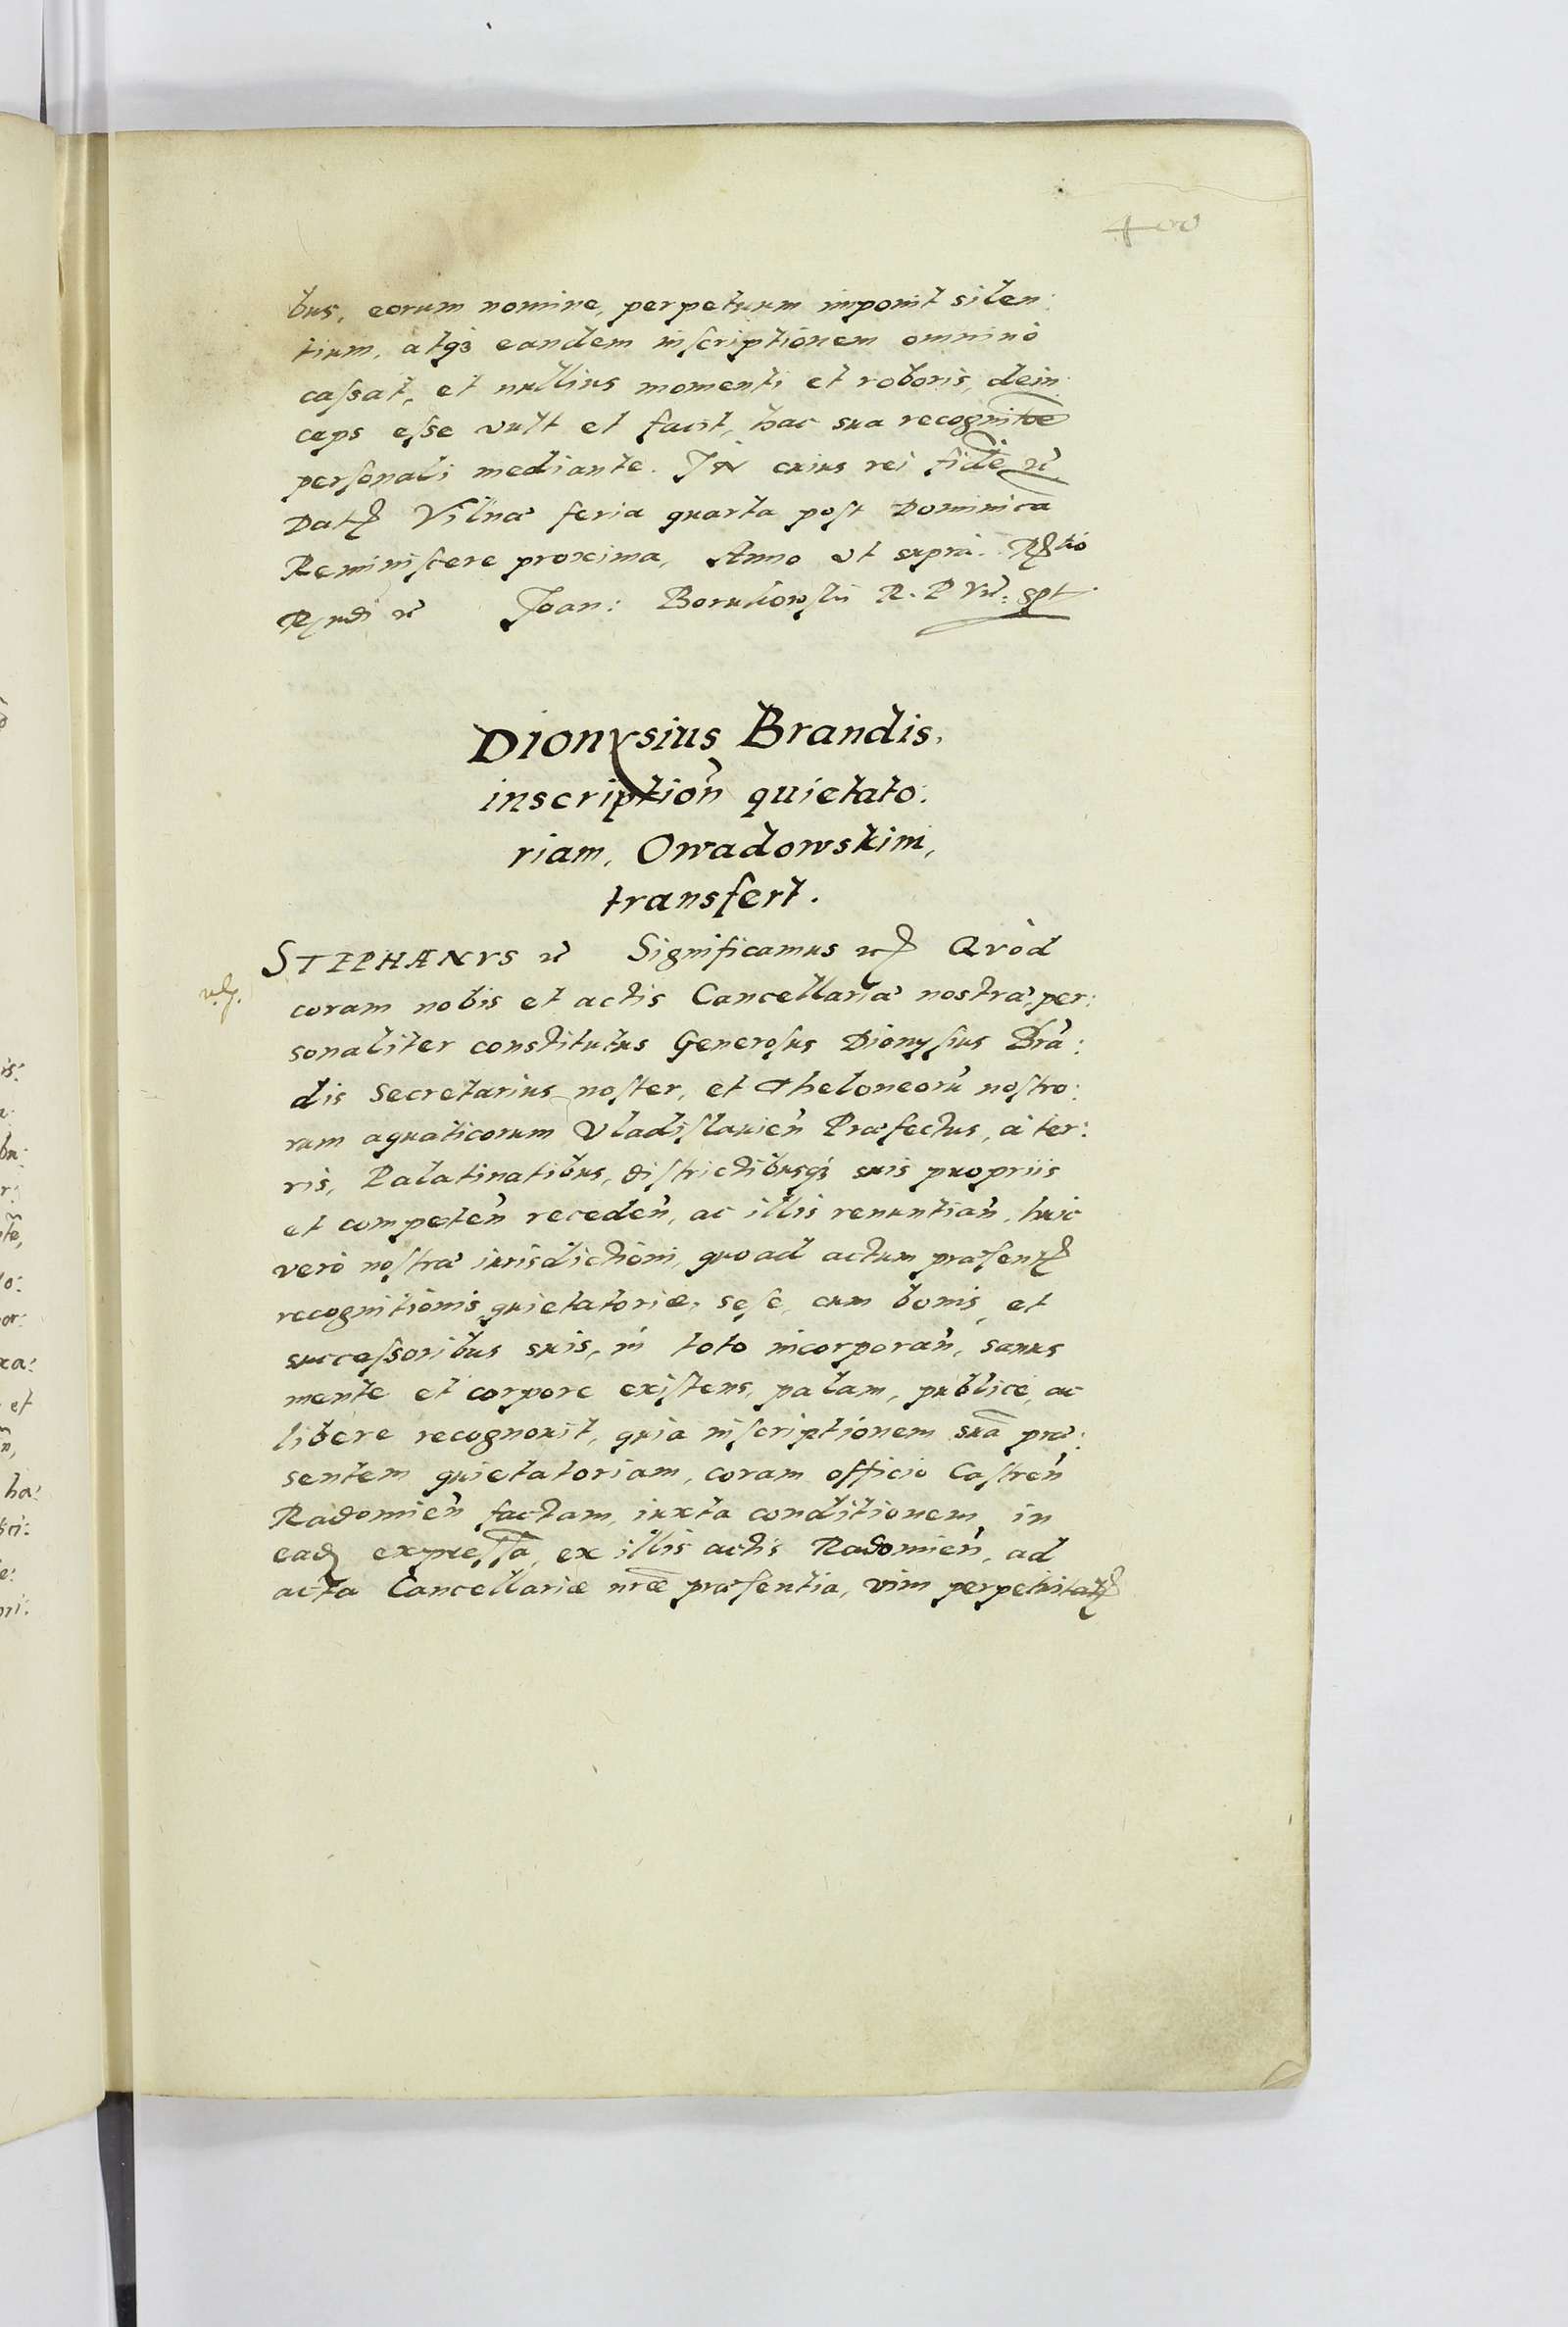 400
bus, eorum nomine, perpetuum imponit silen:
tium, atqꝫ eandem inſcriptionem omninò
caſsat, et nullius momenti et roboris, dein:
ceps eſse vult et facit, hac sua recognitōe
perſonali mediante. IN cuius rei fidē
Dat Vilnæ feria quarta poſt Dominicā
Reminiſcere proxima, Anno vt suprà.
Joan: Borukowſki R. P Vi: spt
Dionysius Brandis,
inscription̄ quietato:
riam, Owadowskim,
transfert.
STEPHANVS Significamus Qvòd
coram nobis et actis Cancellariæ nostræ, per:
sonaliter constitutus Generoſus Dionyſius Brā:
dis Secretarius noſter, et Theloneorū noſtro:
rum aquaticorum Vladiſlauien̄ Præfectus, à ter:
ris, Palatinatibus, diſtrictibusqꝫ suis propriis
et competen̄ receden̄, ac illis renuntian̄, huic
verò noſtræ iurisdictioni, quoad actum præſent
recognitionis quietatoriæ, seſe, cum bonis, et
succeſsoribus suis, in toto incorporan̄, sanus
mente et corpore exiſtens, palam, publicè, ac
libere recognouit, quia inſcriptionem suā præ:
sentem quietatoriam, coram officio Caſtren̄
Radomien̄ factam, iuxta conditionem in
ead expreſſā, ex illis actis Radomien̄, ad
acta Cancellariæ nrāe præſentia, vim perpetuitat